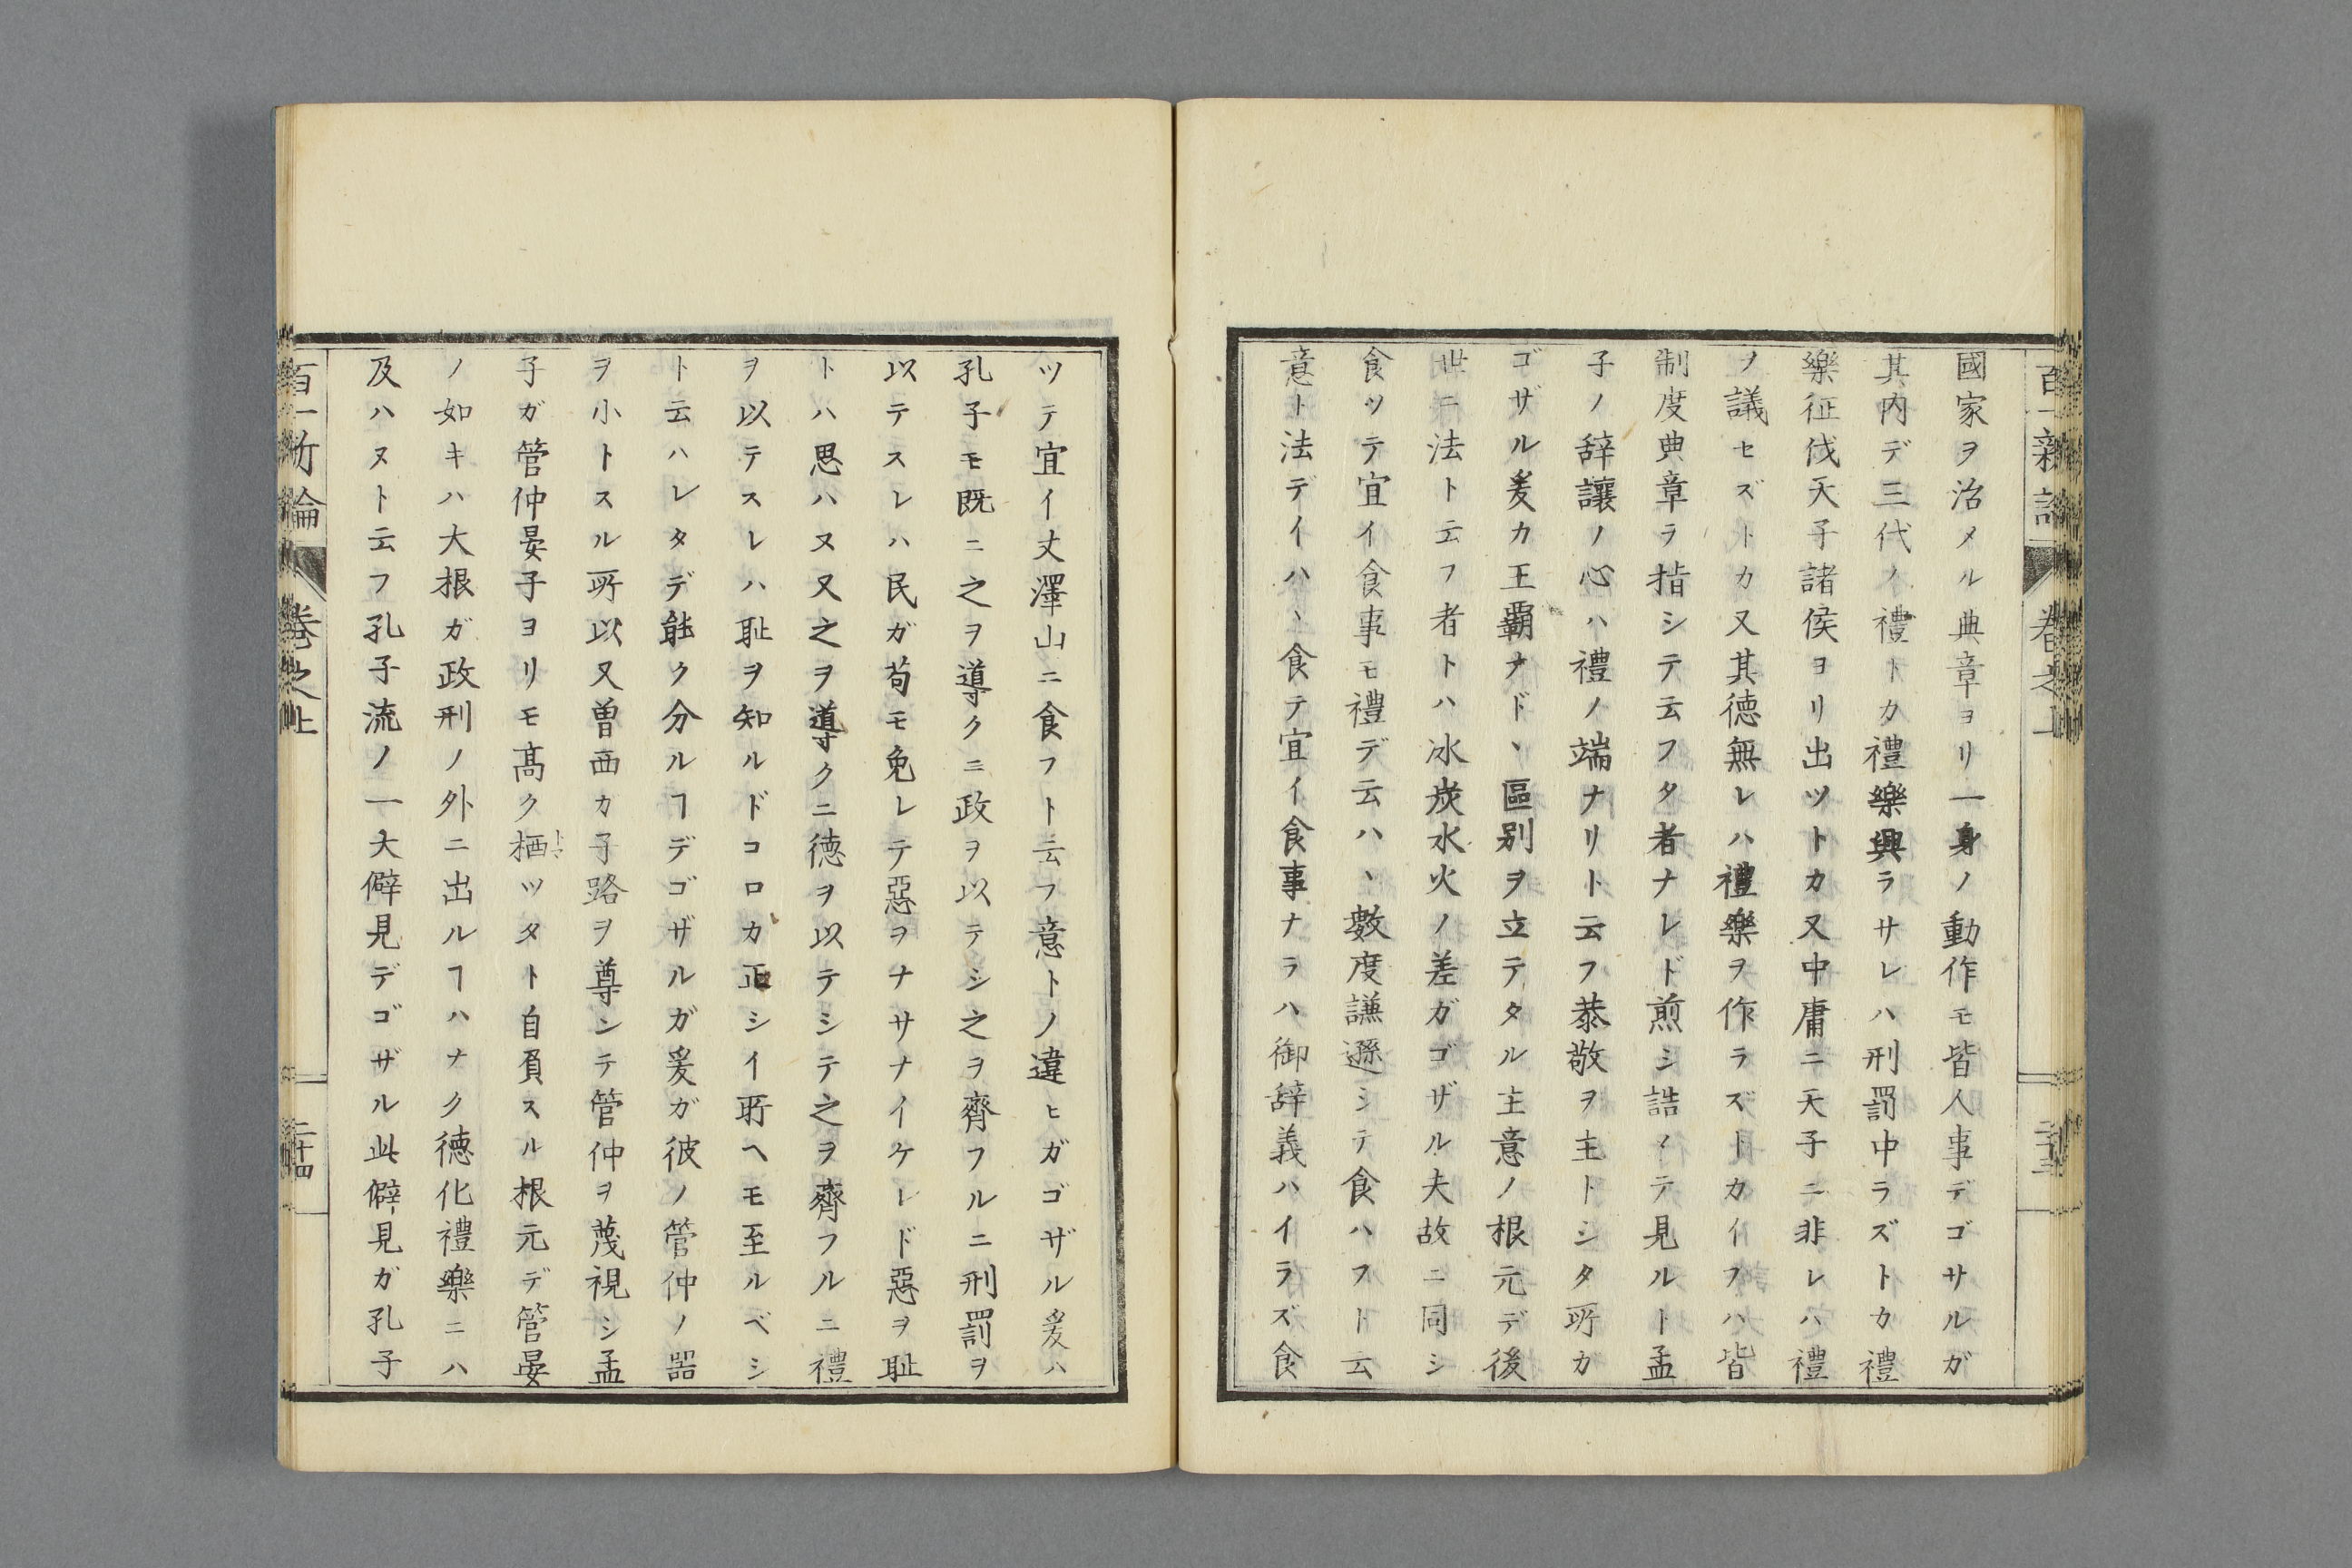 國家ヲ治メル典章ヨリ一身ノ動作モ皆人事デゴサルガ
其内デ三代ノ禮トカ禮樂興ラサレハ刑罰中ラズトカ禮
樂征伐天子諸侯ヨリ出ツトカ又中庸ニ天子ニ非レハ禮
ノ議セズトカ又其徳無レハ禮樂ヲ作ラズトカイフハ皆
制度典章ヲ指シテ云フタ者ナレド煎シ詰メテ見ルト孟
子ノ辞讓ノ心ハ禮ノ端ナリト云フ恭敬ヲ主トシタ所カ
ゴザル爰カ王覇ナドヽ區别ヲ立テタル主意ノ根元デ後
世ニ法ト云フ者トハ冰炭水火ノ差ガゴザル夫故ニ同シ
食ツテ宜イ食事モ禮デ云ハヽ數度謙遜シテ食ハフト云
意ト法デイハヽ食テ宜イ食事ナラハ御辞義ハイラズ食
ツテ宜イ丈澤山ニ食フト云フ意トノ違ヒガゴザル爰ハ
孔子モ既ニ之ヲ導クニ政ヲ以テシ之ヲ齊フルニ刑罰ヲ
以テスレハ民ガ苟モ免レテ惡ヲナサナイケレド惡ヲ耻
トハ思ハヌ又之ヲ導クニ徳ヲ以テシテ之ヲ齊フルニ禮
ヲ以テスレハ耻ヲ知ルドコロカ正シイ所ヘモ至ルベシ
ト云ハレタデ能ク分ルヿデゴザルガ爰ガ彼ノ管仲ノ噐
ヲ小トスル所以又曽西カ子路ヲ尊ンテ管仲ヲ蔑視シ孟
子ガ管仲晏子ヨリモ髙ク栖ツタト自負スル根元デ管晏
ノ如キハ大根ガ政刑ノ外ニ出ルヿハナク徳化禮樂ニハ
及ハヌト云フ孔子流ノ一大僻見デゴザル此僻見ガ孔子
百一新論 巻之上 二十四